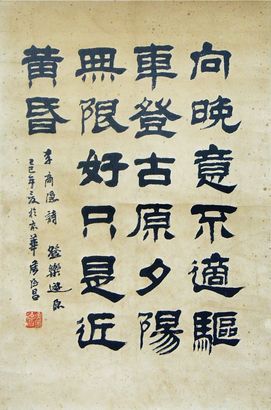 向晚意不適驅
車登古原夕陽
無限好只是近
黃昏
李商隱詩 登樂遊原